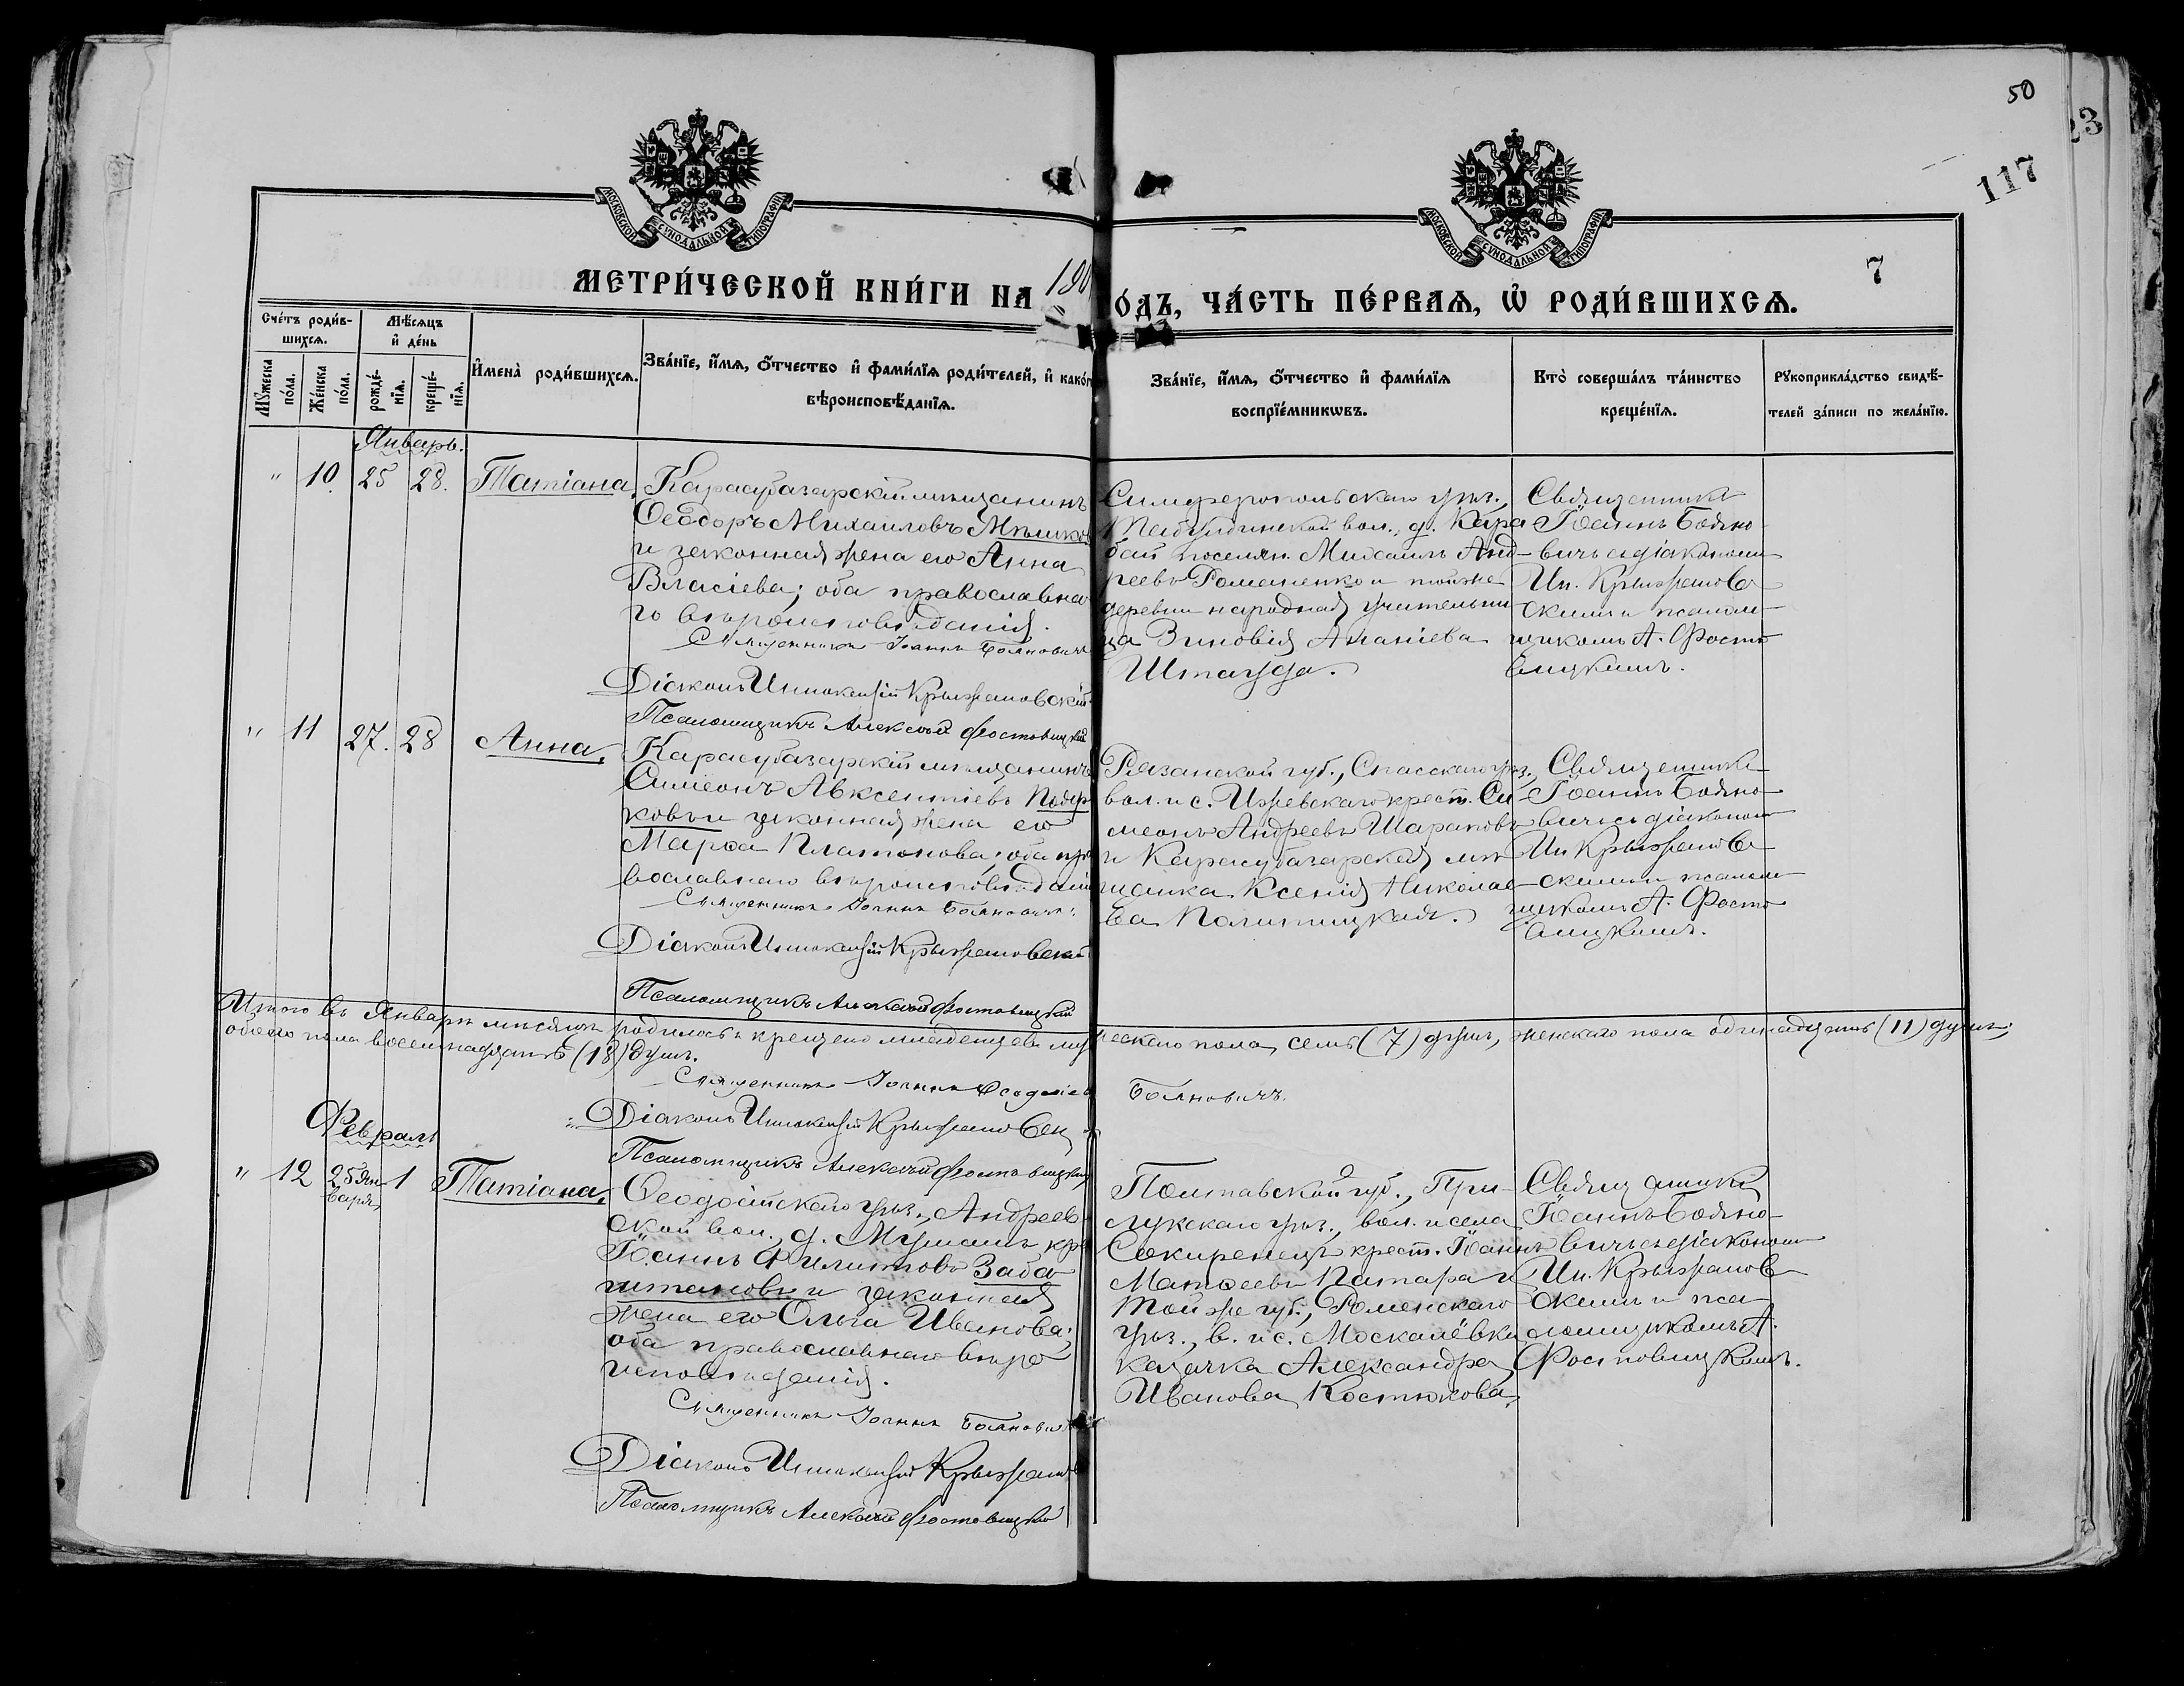 50
117
23
7
МОСКОВСКОЙ СѴНОДАЛЬНОЙ ТИПОГРАФІИ
МОСКОВСКОЙ СѴНОДАЛЬНОЙ ТИПОГРАФІИ
МЕТРИ́ЧЕСКОЙ КНИ́ГИ НА 190
О́ДЪ, ЧА́СТЬ ПЕ́РВАЯ, Ѿ РОДИ́ВШИХСЯ.
Сче́тъ роди́вшихся.
Му́жеска по́ла.
Же́нска по́ла.
Мѣ́сяцъ и҆ де́нь
рожде́нїя.
креще́нїя.
И҆мена̀ роди́вшихся.
Зва́нїе, и҆́мя, ѻ҆́тчество и҆ фами́лїя роди́телей, и҆ како́г
вѣроисповѣ́данїя.
Зва́нїе, и҆́мя, ѻ҆́тчество и҆ фами́лїя
воспрїе́мникѡвъ.
Кто̀ соверша́лъ та́инство
креще́нїя.
Рꙋкоприкла́дство свидѣ́-
телей за́писи по жела́нїю.
Январь.
" 10. 25 28. Татіана.
Карасубазарскій мѣщанинъ
Ѳеодоръ Михаиловъ Мѣшков
и законная жена его Анна
Власіева; оба православна
го вѣроисповѣданія.
Священникъ Іоаннъ Бояновичъ
Діаконъ Иннокентій Крыжановскій
Псаломщикъ Алексѣй Фостовицкій
Симферопольскаго уѣз.,
Табулдинской вол., д. Кара
бай поселян. Михаилъ Анд-
реевъ Романенко и той же
деревни народная учительни
ца Зиновія Ананіева
Штагуда.
Священникъ
Іоаннъ Бояно-
вичъ съ діакономъ
Ин. Крыжановс
кимъ и псалом-
щикомъ А. Фосто
вицкимъ.
" 11 27. 28 Анна.
Карасубазарскій мѣщанинъ
Симеонъ Авксентіевъ
ковъ и законная жена его
Марѳа Платонова; оба пра
вославнаго вѣроисповѣданія
Священникъ Іоаннъ Бояновичъ.
Діаконъ Иннокентій Крыжановскій
Псаломщикъ Алексѣй Фостовицкій
Рязанской губ., Спасскаго уѣз.,
вол. и с. Ижевскаго крест. Си
меонъ Андреевъ Шараповъ
и Карасубазарская мѣ
щанка Ксенія Николае-
ва Политицкая.
Священникъ
Іоаннъ Бояно-
вичъ съ діакономъ
Ин. Крыжановс
кимъ и псалом
щикомъ А. Фосто
вицкимъ.
Итого въ Январѣ мѣсяцѣ родилось и крещено младенцевъ мужескаго пола, семь (7) душъ, женскаго пола одинадцать (11) душъ;
обоего пола восемнадцать (18) душъ.
Священникъ Іоаннъ Ѳеодосіев Бояновичъ.
Діаконъ Иннокентій Крыжановск
Псаломщикъ Алексѣй Фостовицкій
Февраль
" 12 25 Января 1 Татіана.
Ѳеодосійскаго уѣз., Андреев
ской вол., д. кр.
Іоаннъ Филиповъ Заба
штановъ и законная
жена его Ольга Иванова;
оба православнаго вѣро
исповѣданія.
Священникъ Іоаннъ Бояновичъ
Діаконъ Иннокентій Крыжанов
Псаломщикъ Алексѣй Фостовицкій
Полтавской губ., При-
лукскаго уѣз., вол. и села
Сокиренецъ крест. Іоаннъ
Матѳеевъ Патара и
той же губ., Роменскаго
уѣз., в. и с. Москалёвки
казачка Александра
Иванова Костюкова.
Священникъ
Іоаннъ Бояно-
вичъ съ діакономъ
Ин. Крыжановс
кимъ и пса
ломщикомъ А.
Фостовицкимъ.